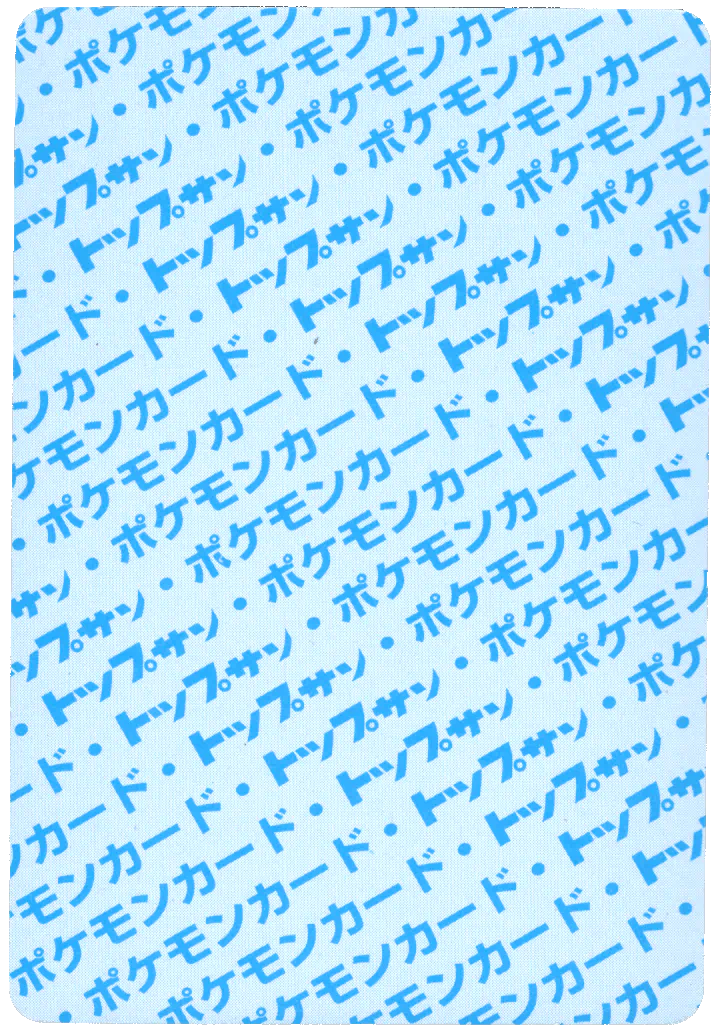 ポケ
ン・ポケモ
プサン・ポケモン
トップサン・ポケモンカ
・トップサン・ポケモンカー
ード・トップサン・ポケモンカード
カード・トップサン・ポケモンカード
ンカード・トップサン・ポケモンカ
ケモンカード・トップサン・ポケモ
・ポケモンカード・トップサン・ポケ
サン・ポケモンカード・トップサン・
ップサン・ポケモンカード・トップサ
・トップサン・ポケモンカード・ト
ード・トップサン・ポケモンカード・
カード・トップサン・ポケモンカー
モンカード・トップサン・ポケモン
ポケモンカード・トップサン・ポケモン
・ポケモンカード・トップサン・ポケ
ポケモンカード・トップサン・
ケモンカード・トップサ
モンカード・ト
ンカード・
カー